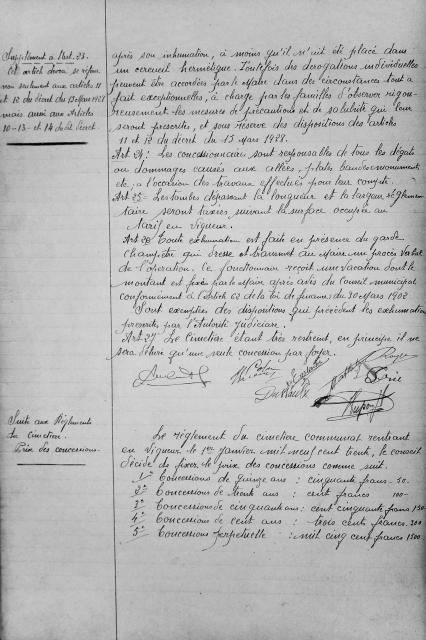 Supplément à l'art. 23.
Cet article devra se référer
non seulement aux articles 11
et 12 du Décret du 15 Mars 1928
mais aussi aux Articles
10-13- et 14 du Décret.
après son inhumation, à moins qu'il n'ait été placé dans
un cercueil hermétique. Toutefois des dérogations individuelles
peuvent être accordées par le Maire dans des circonstances tout à
fait exceptionnelles, à charge par les familles d'observer rigou-
reusement les mesures de précautions et de salubrité qui leur
seront prescrites, et sous réserve des dispositions des articles
11 et 12 du décret du 15 Mars 1928.
Art 24: Les concessionnaires sont responsables de tous les dégâts
ou dommages causés aux allées, plates bandes monuments
etc. à l'occasion des travaux effectués pour leur compte.
Art 25- Les tombes dépassant la longueur et la largeur réglemen-
taire seront taxées suivant la surface occupée au
tarif en vigueur.
Art 26 Toute exhumation est faite en présence du garde
champêtre qui dresse et transmet au Maire un procès verbal
de l'opération. Ce fonctionnaire reçoit une vacation dont le
montant est fixé par le Maire après avis du Conseil municipal
conformément à l'Article 62 de la loi de finances du 30 Mars 1902
Sont exemptées des dispositions qui précèdent les exhumations
prescrites par l'Autorité Judiciaire.
Art 27 Le Cimetière étant très restreint, en principe il ne
sera délivré qu'une seule concession par foyer.
Dupont
Suite aux Règlements
du cimetière.
Prix des concessions.
Le règlement du cimetière communal rentrant
en vigueur le 1er Janvier mil neuf cent trente, le conseil
décide de fixer le prix des concessions comme suit.
1° Concessions de quinze ans : cinquante francs. 50.
2° Concessions de trente ans : cent francs 100-
3° Concessions de cinquante ans: cent cinquante francs 150
4° Concessions de cent ans : trois cents francs. 300
5° Concessions perpétuelle : mil cinq cent francs 1500